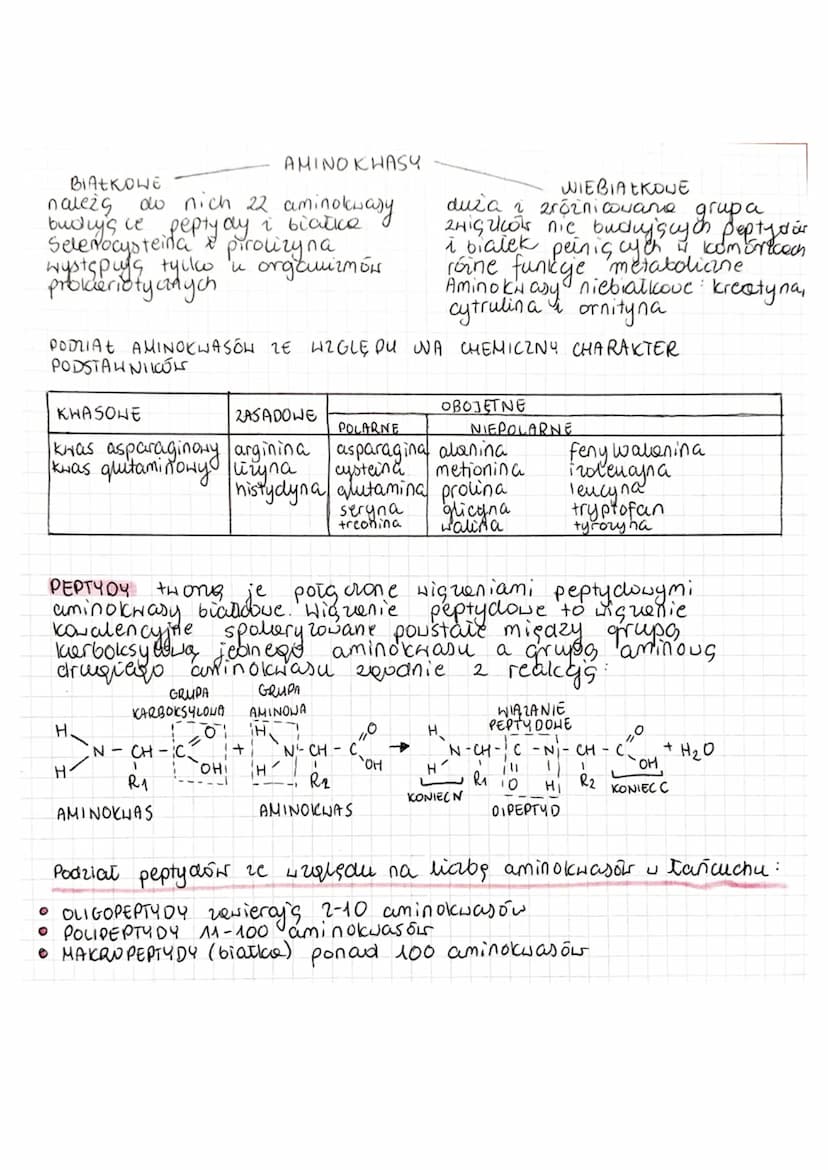 AMINOKWASY
BIAŁKOWE
należą do nich 22 aminokwasy
budujące peptydy i białka
Selenocysteina i pirolizyna
występują tylko u organizmów
prokariotycznych
NIEBIAŁKOWE
duża i zróżnicowana grupa
związków nie budujących peptydów
i białek pełniących w komórkach
różne funkcje metaboliczne
Aminokwasy niebiałkowe: kreatyna,
cytrulina i ornityna
PODZIAŁ AMINOKWASÓW ZE WZGLĘDU NA CHEMICZNY CHARAKTER
PODSTAWNIKÓW
KWASOWE ZASADOWE OBOJĘTNE
POLARNE NIEPOLARNE
kwas asparaginowy arginina asparagina alanina fenyloalanina
kwas glutaminowy lizyna cysteina metionina izoleucyna
histydyna glutamina prolina leucyna
seryna glicyna tryptofan
treonina walina tyrozyna
PEPTYDY tworzą je połączone wiązaniami peptydowymi
aminokwasy białkowe. Wiązanie peptydowe to wiązanie
kowalencyjne spolaryzowane powstałe między grupą
karboksylową jednego aminokwasu a grupą aminową
drugiego aminokwasu zgodnie z reakcją:
GRUPA KARBOKSYLOWA
GRUPA AMINOWA
WIĄZANIE PEPTYDOWE
H O H O H O
N - CH - C + N - CH - C → N - CH - C - N - CH - C + H2O
H R1 OH H R2 OH H R1 O H R2 OH
KONIEC N KONIEC C
AMINOKWAS AMINOKWAS DIPEPTYD
Podział peptydów ze względu na liczbę aminokwasów w łańcuchu:
• OLIGOPEPTYDY zawierają 2-10 aminokwasów
• POLIPEPTYDY 11-100 aminokwasów
• MAKROPEPTYDY (białka) ponad 100 aminokwasów